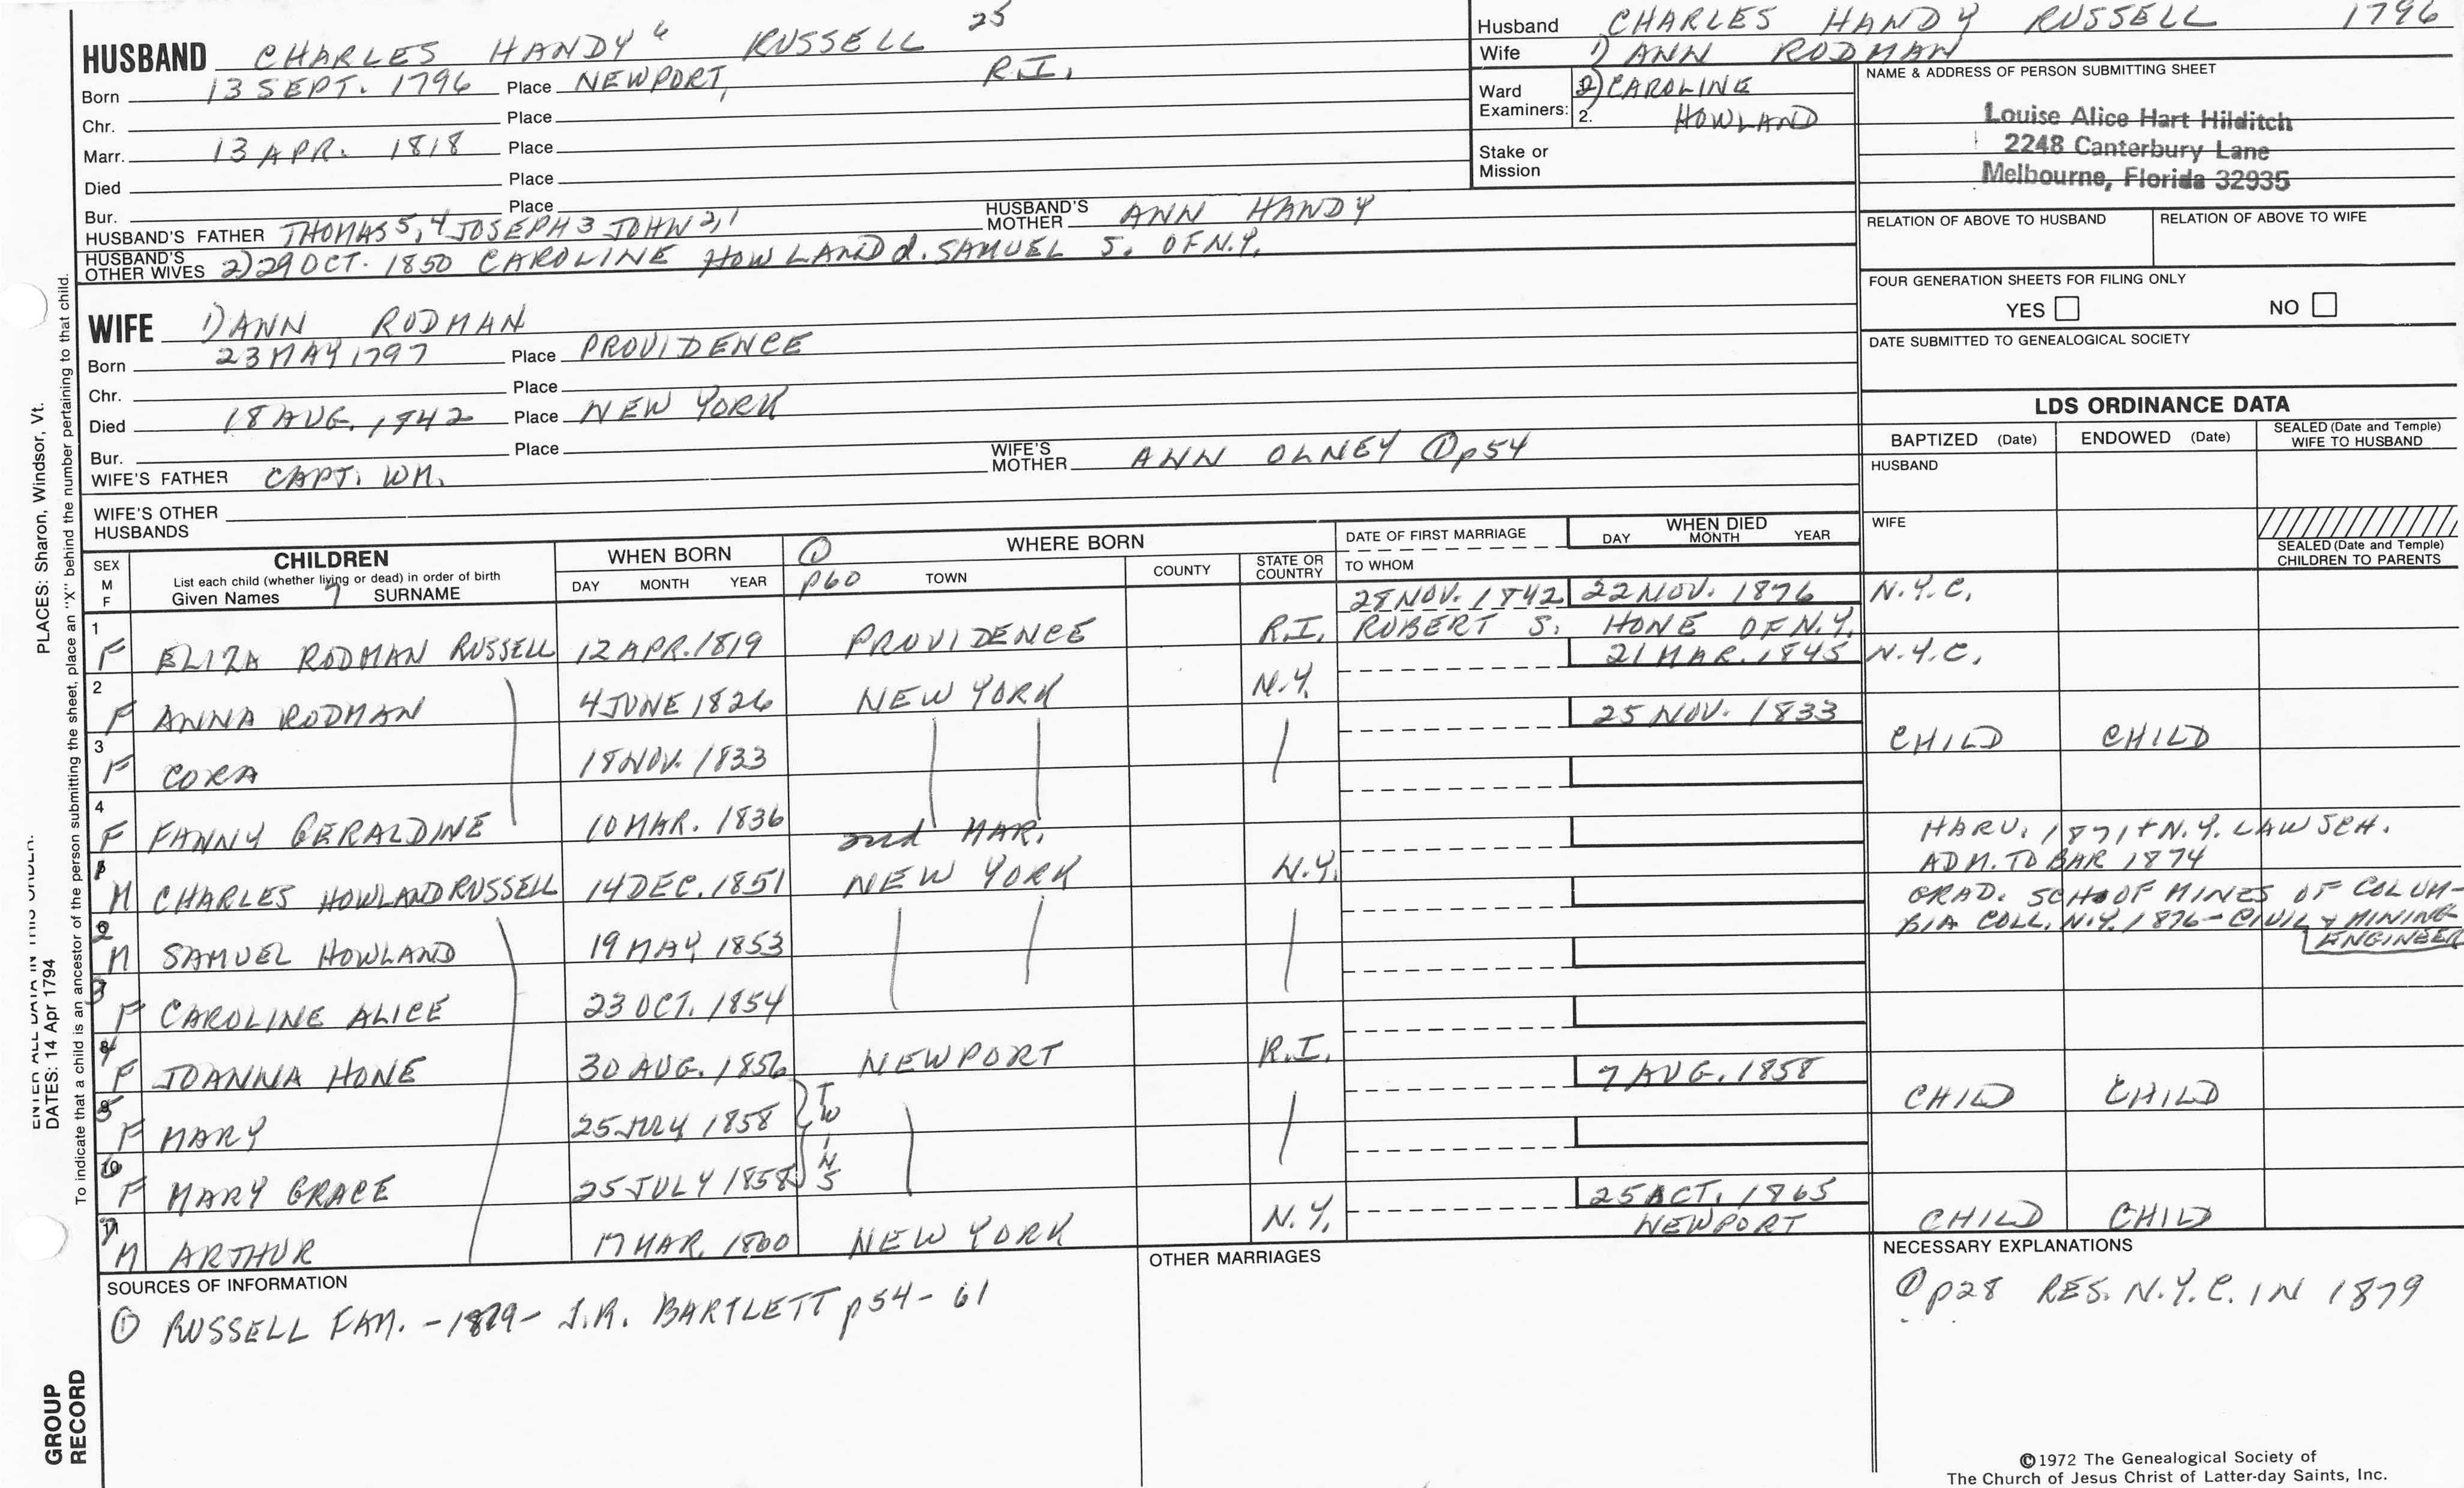 HUSBAND CHARLES HANDY 6 RUSSELL 25
Born 13 SEPT. 1796 Place NEWPORT, R.I.
Chr. Place
Marr. 13 APR. 1818 Place
Died Place
Bur. Place
HUSBAND'S FATHER THOMAS 5,4 JOSEPH 3 JOHN 2,1 HUSBAND'S MOTHER ANN HANDY
HUSBAND'S OTHER WIVES 2) 29 OCT. 1850 CAROLINE HOWLAND d. SAMUEL S. OF N.Y.
WIFE 1) ANN RODMAN
Born 23 MAY 1797 Place PROVIDENCE
Chr. Place
Died 18 AUG. 1842 Place NEW YORK
Bur. Place
WIFE'S FATHER CAPT. WM. WIFE'S MOTHER ANN OLNEY ① p54
WIFE'S OTHER HUSBANDS
Husband CHARLES HANDY RUSSELL 1796
Wife 1) ANN RODMAN
Ward Examiners: 2) CAROLINE
2. HOWLAND
Stake or Mission
NAME & ADDRESS OF PERSON SUBMITTING SHEET
Louise Alice Hart Hilditch
2248 Canterbury Lane
Melbourne, Florida 32935
RELATION OF ABOVE TO HUSBAND RELATION OF ABOVE TO WIFE
FOUR GENERATION SHEETS FOR FILING ONLY
YES NO
DATE SUBMITTED TO GENEALOGICAL SOCIETY
LDS ORDINANCE DATA
BAPTIZED (Date) ENDOWED (Date) SEALED (Date and Temple) WIFE TO HUSBAND
HUSBAND
WIFE
SEALED (Date and Temple) CHILDREN TO PARENTS
SEX M F
CHILDREN
List each child (whether living or dead) in order of birth
Given Names 7 SURNAME
WHEN BORN
DAY MONTH YEAR
① p60 WHERE BORN
TOWN COUNTY STATE OR COUNTRY
DATE OF FIRST MARRIAGE
TO WHOM
WHEN DIED
DAY MONTH YEAR
28 NOV. 1842 22 NOV. 1876 N.Y.C.
1 F ELIZA RODMAN RUSSELL 12 APR. 1819 PROVIDENCE R.I. ROBERT S. HONE OF N.Y.
21 MAR. 1845 N.Y.C.
2 F ANNA RODMAN 4 JUNE 1826 NEW YORK N.Y.
25 NOV. 1833
3 F CORA 18 NOV. 1833 CHILD CHILD
4 F FANNY GERALDINE 10 MAR. 1836
2nd MAR.
HARV. 1871 + N.Y. LAW SCH.
ADM. TO BAR 1874
M CHARLES HOWLAND RUSSELL 14 DEC. 1851 NEW YORK N.Y.
GRAD. SCH OF MINES OF COLUM-
BIA COLL. N.Y. 1876 - CIVIL & MINING
ENGINEER
2 M SAMUEL HOWLAND 19 MAY 1853
3 F CAROLINE ALICE 23 OCT. 1854
4 F JOANNA HONE 30 AUG. 1856 NEWPORT R.I.
7 AUG. 1858
5 F MARY 25 JULY 1858 TWINS CHILD CHILD
6 F MARY GRACE 25 JULY 1858
25 OCT. 1865
7 M ARTHUR 17 MAR. 1860 NEW YORK N.Y. NEWPORT CHILD CHILD
SOURCES OF INFORMATION
① RUSSELL FAM. - 1879 - J.R. BARTLETT p54-61
OTHER MARRIAGES
NECESSARY EXPLANATIONS
① p28 RES. N.Y.C. IN 1879
©1972 The Genealogical Society of
The Church of Jesus Christ of Latter-day Saints, Inc.
DATES: 14 Apr 1794 PLACES: Sharon, Windsor, Vt.
To indicate that a child is an ancestor of the person submitting the sheet, place an "X" behind the number pertaining to that child.
GROUP
RECORD